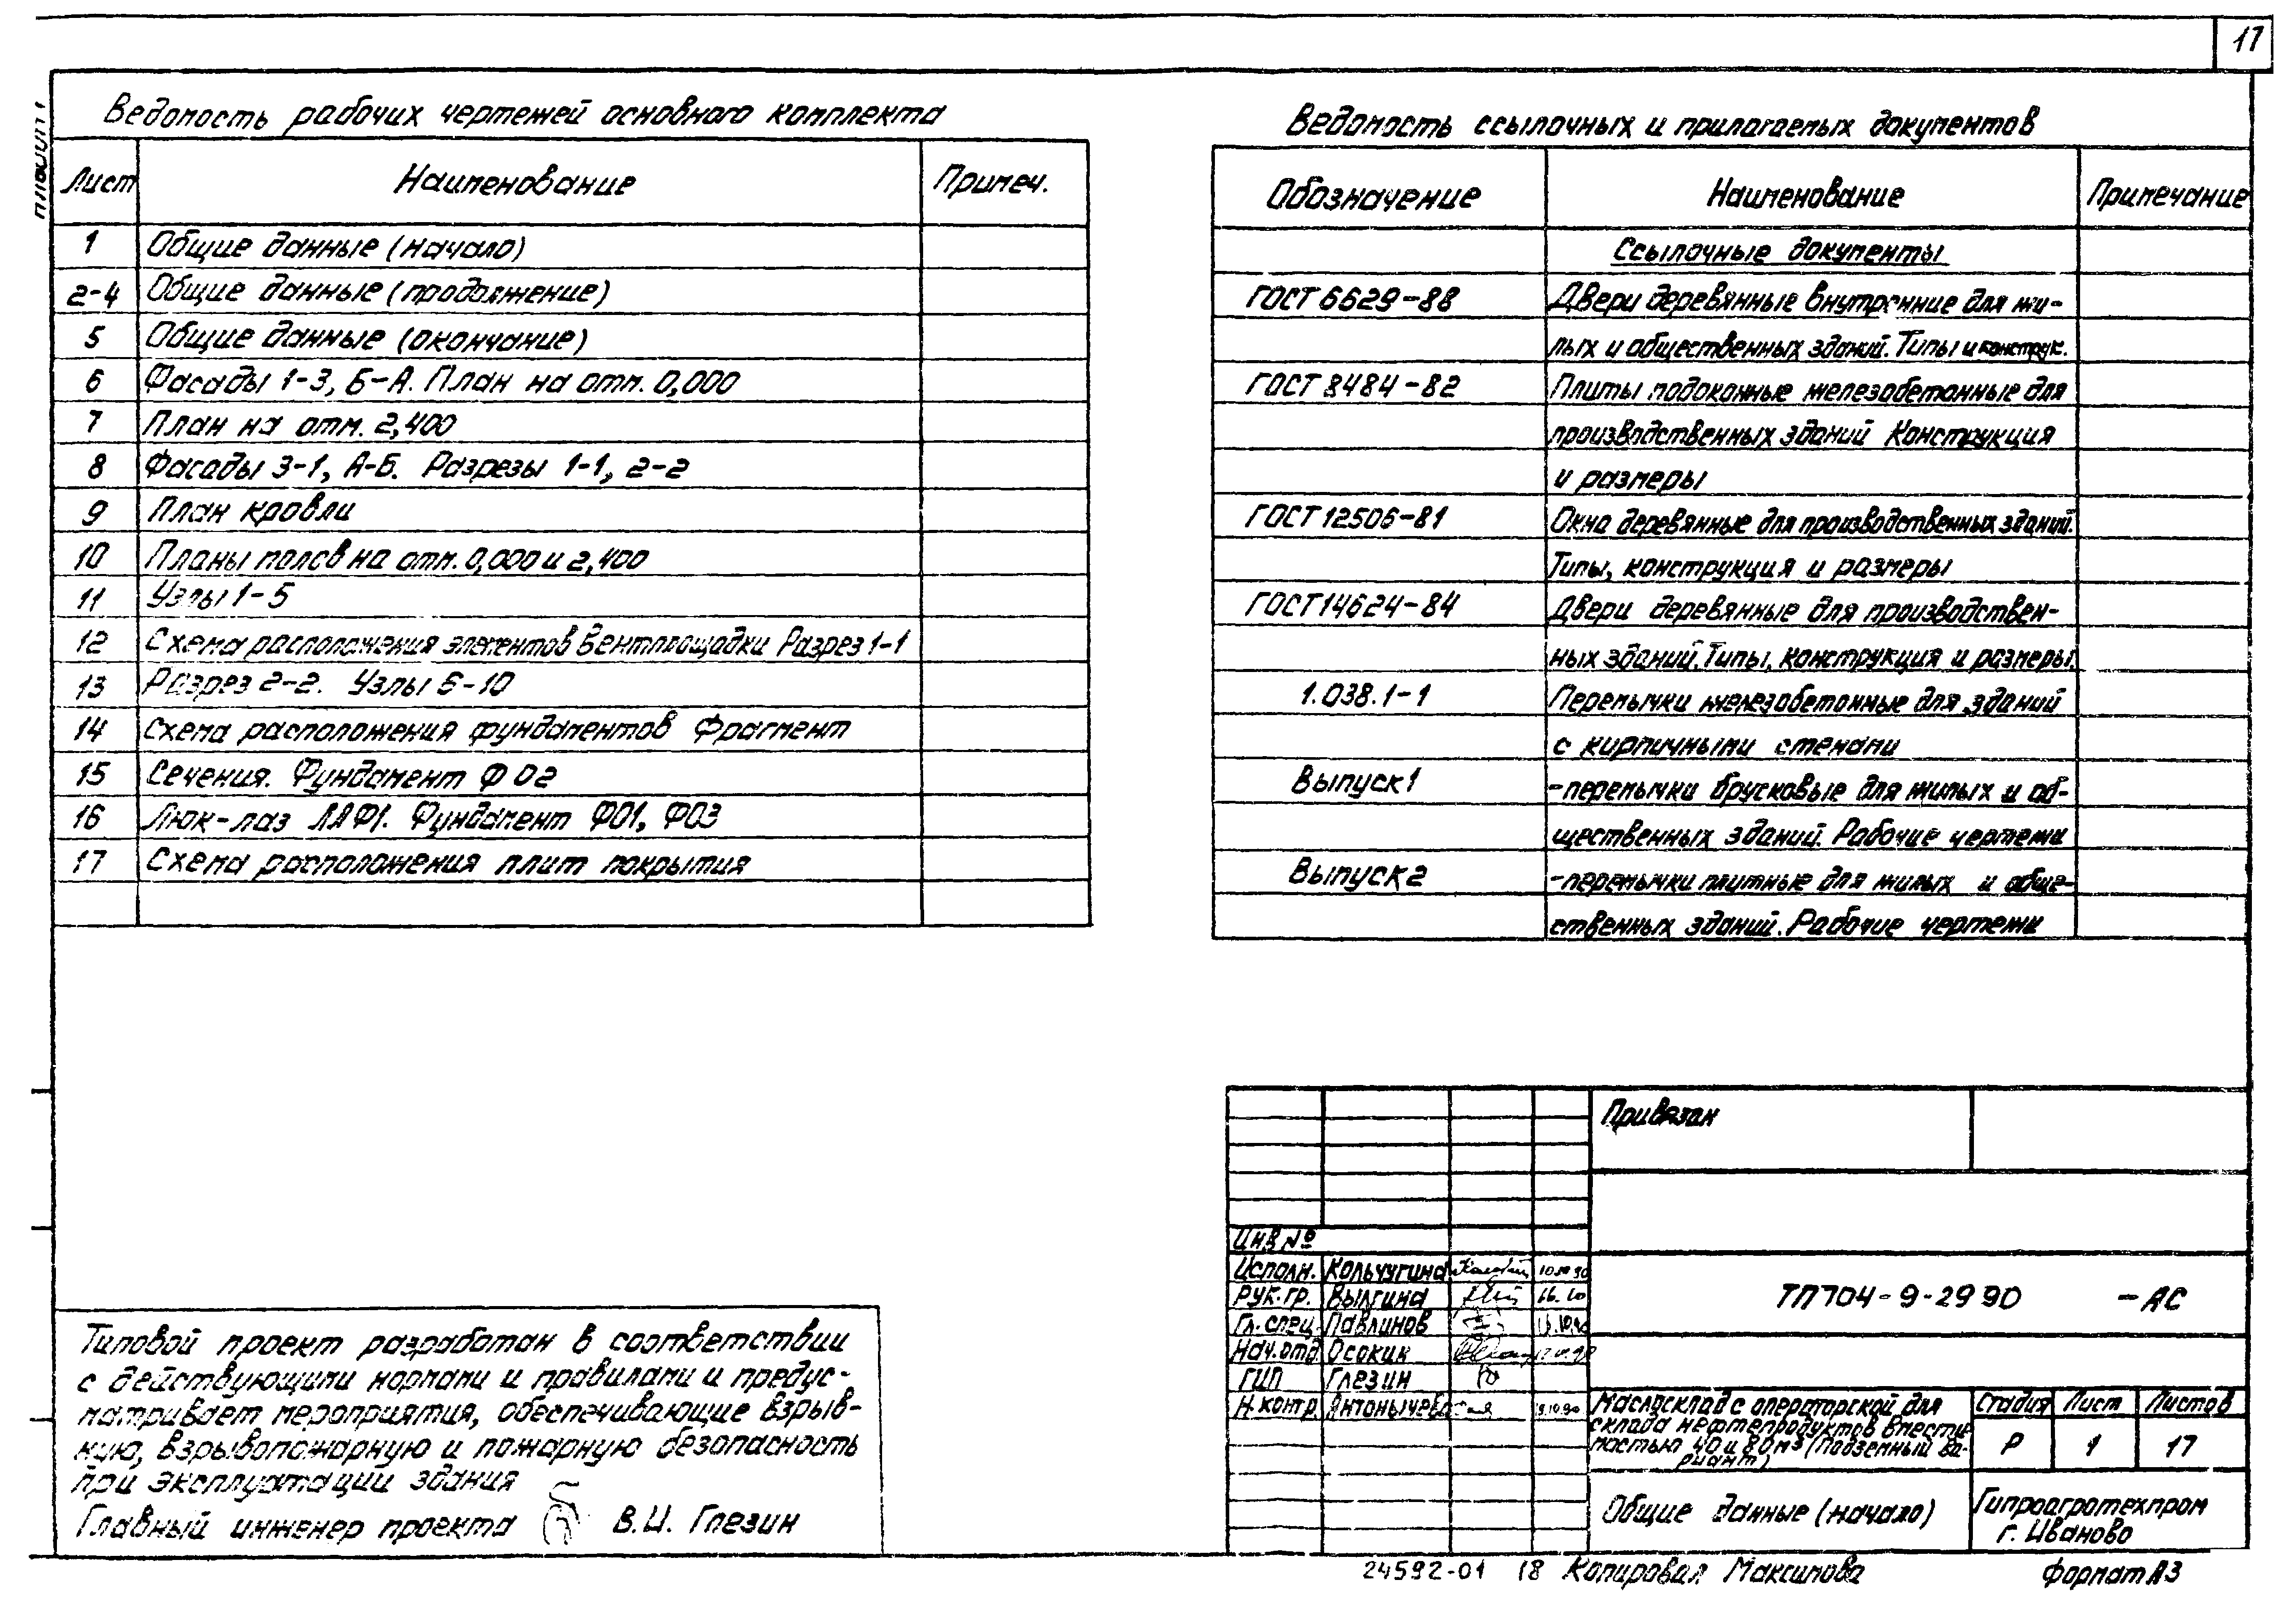 17
Альбом 1
Ведомость рабочих чертежей основного комплекта
Лист Наименование Примеч.
1 Общие данные (начало)
2-4 Общие данные (продолжение)
5 Общие данные (окончание)
6 Фасады 1-3, Б-А. План на отм. 0,000
7 План на отм. 2,400
8 Фасады 3-1, А-Б. Разрезы 1-1, 2-2
9 План кровли
10 Планы полов на отм. 0,000 и 2,400
11 Узлы 1-5
12 Схема расположения элементов вентплощадки Разрез 1-1
13 Разрез 2-2. Узлы 6-10
14 Схема расположения фундаментов Фрагмент
15 Сечения. Фундамент Ф02
16 Люк-лаз ЛАФ1. Фундамент Ф01, Ф03
17 Схема расположения плит покрытия
Ведомость ссылочных и прилагаемых документов
Обозначение Наименование Примечание
Ссылочные документы
ГОСТ 6629-88 Двери деревянные внутренние для жи-
лых и общественных зданий. Типы и конструк.
ГОСТ 8484-82 Плиты подоконные железобетонные для
производственных зданий Конструкция
и размеры
ГОСТ 12506-81 Окна деревянные для производственных зданий.
Типы, конструкция и размеры
ГОСТ 14624-84 Двери деревянные для производствен-
ных зданий. Типы, конструкция и размеры
1.038.1-1 Перемычки железобетонные для зданий
с кирпичными стенами
Выпуск 1 -перемычки брусковые для жилых и об-
щественных зданий. Рабочие чертежи
Выпуск 2 -перемычки плитные для жилых и обще-
ственных зданий. Рабочие чертежи
Типовой проект разработан в соответствии
с действующими нормами и правилами и предус-
матривает мероприятия, обеспечивающие взрыв-
ную, взрывопожарную и пожарную безопасность
при эксплуатации здания
Главный инженер проекта В.И. Глезин
Привязан
Инв №
Исполн. Кольчугина
Рук. гр. Вылгина
Гл. спец. Павлинов
Нач. отд. Осокин
ГИП Глезин
Н. контр. Антонычева
ТП 704-9-29 90 -АС
Маслосклад с операторской для
склада нефтепродуктов вмести-
мостью 40 и 80 м³ (Подземный ва-
риант)
Стадия Лист Листов
Р 1 17
Общие данные (начало)
Гипроагротехпром
г. Иваново
24592-01 18 Копировал Максимова Формат А3